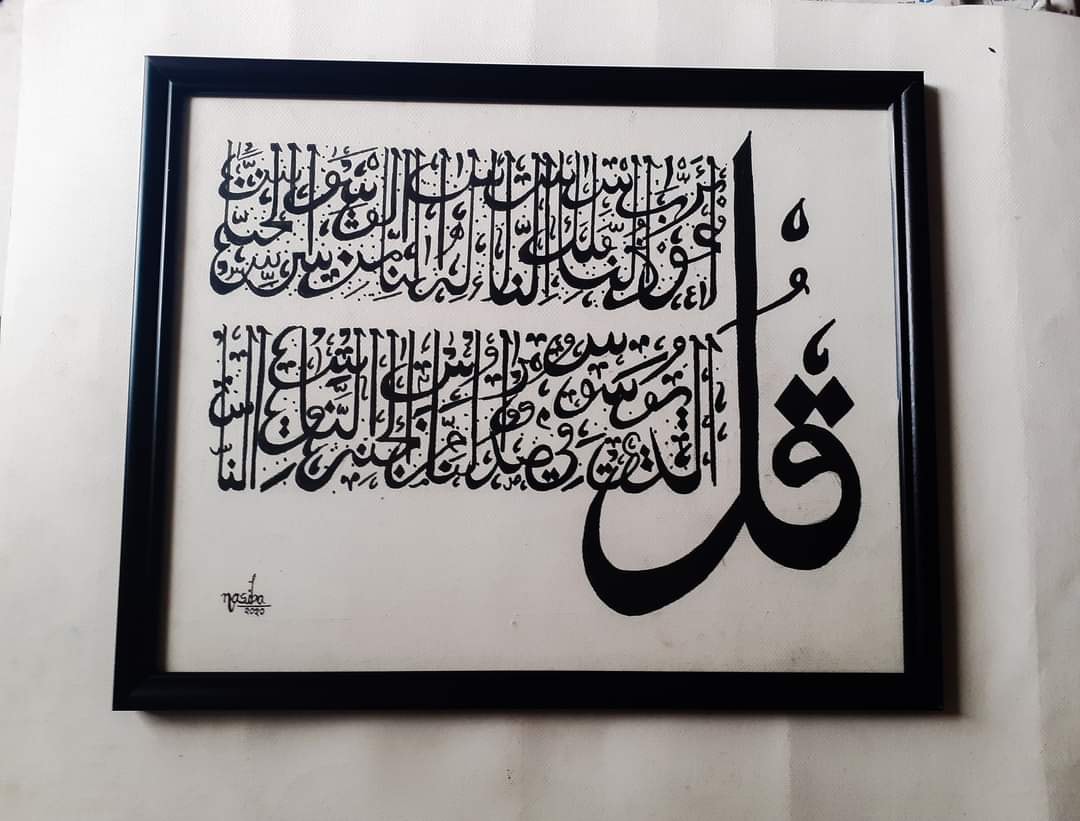 قُلْ
أَعُوذُ بِرَبِّ النَّاسِ مَلِكِ النَّاسِ إِلَٰهِ النَّاسِ مِنْ شَرِّ الْوَسْوَاسِ الْخَنَّاسِ
الَّذِي يُوَسْوِسُ فِي صُدُورِ النَّاسِ مِنَ الْجِنَّةِ وَالنَّاسِ
nasiba
২০২০